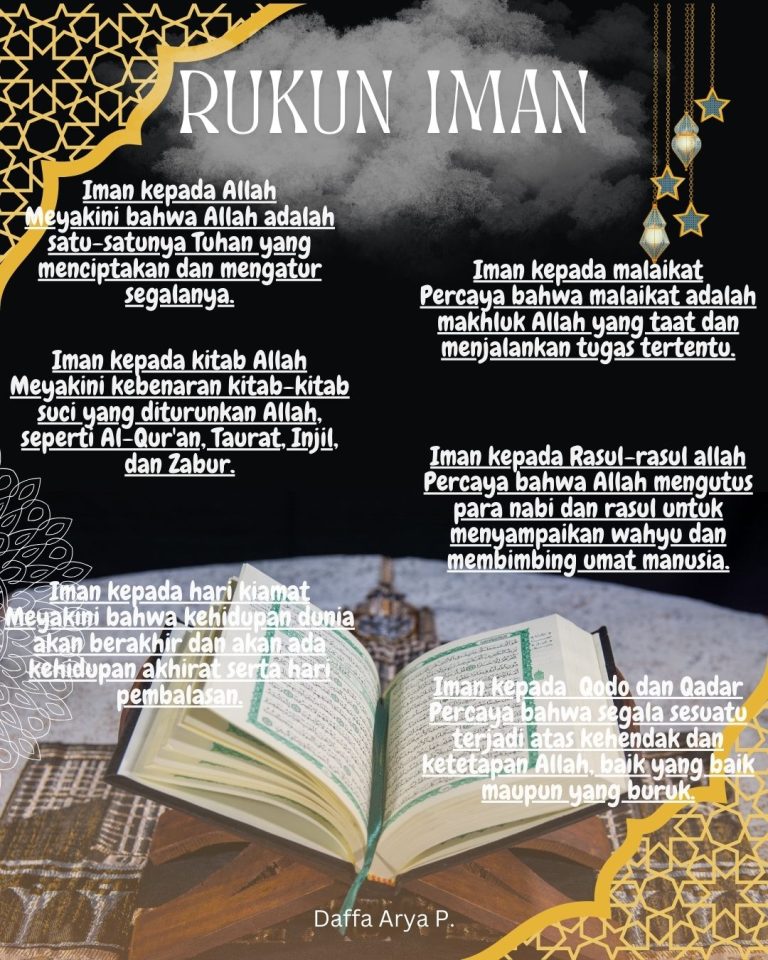 RUKUN IMAN
Iman kepada Allah
Meyakini bahwa Allah adalah
satu-satunya Tuhan yang
menciptakan dan mengatur
segalanya.
Iman kepada malaikat
Percaya bahwa malaikat adalah
makhluk Allah yang taat dan
menjalankan tugas tertentu.
Iman kepada kitab Allah
Meyakini kebenaran kitab-kitab
suci yang diturunkan Allah,
seperti Al-Qur'an, Taurat, Injil,
dan Zabur.
Iman kepada Rasul-rasul allah
Percaya bahwa Allah mengutus
para nabi dan rasul untuk
menyampaikan wahyu dan
membimbing umat manusia.
Iman kepada hari kiamat
Meyakini bahwa kehidupan dunia
akan berakhir dan akan ada
kehidupan akhirat serta hari
pembalasan.
Iman kepada Qodo dan Qadar
Percaya bahwa segala sesuatu
terjadi atas kehendak dan
ketetapan Allah, baik yang baik
maupun yang buruk.
Daffa Arya P.